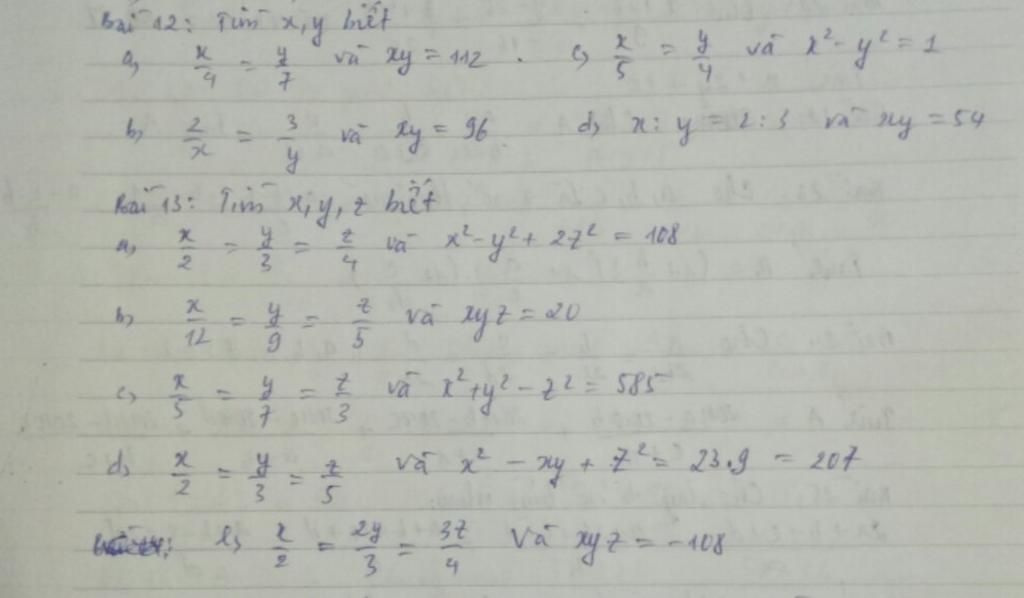 Bài 12: Tìm x, y biết
a, x/4 = y/7 và xy = 112 . c, x/5 = y/4 và x² - y² = 1
b, 2/x = 3/y và xy = 96 . d, x : y = 2 : 3 và xy = 54
Bài 13: Tìm x, y, z biết
a, x/2 = y/3 = z/4 và x² - y² + 2z² = 108
b, x/12 = y/9 = z/5 và xyz = 20
c, x/5 = y/7 = z/3 và x² + y² - z² = 585
d, x/2 = y/3 = z/5 và x² - xy + z² = 23.9 = 207
x/2 = 2y/3 = 3z/4 và xyz = -108